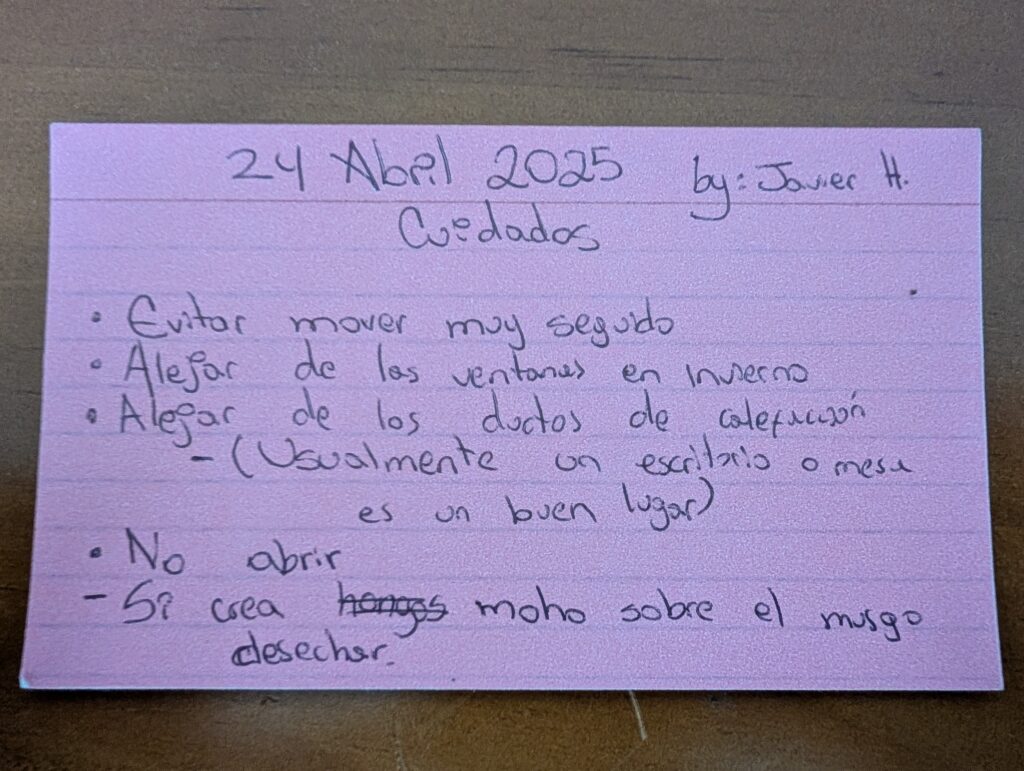 24 Abril 2025 by: Javier H.
Cuidados
• Evitar mover muy seguido
• Alejar de las ventanas en invierno
• Alejar de los ductos de calefacción
- (Usualmente un escritorio o mesa
es un buen lugar)
• No abrir
- Si crea hongos moho sobre el musgo
desechar.